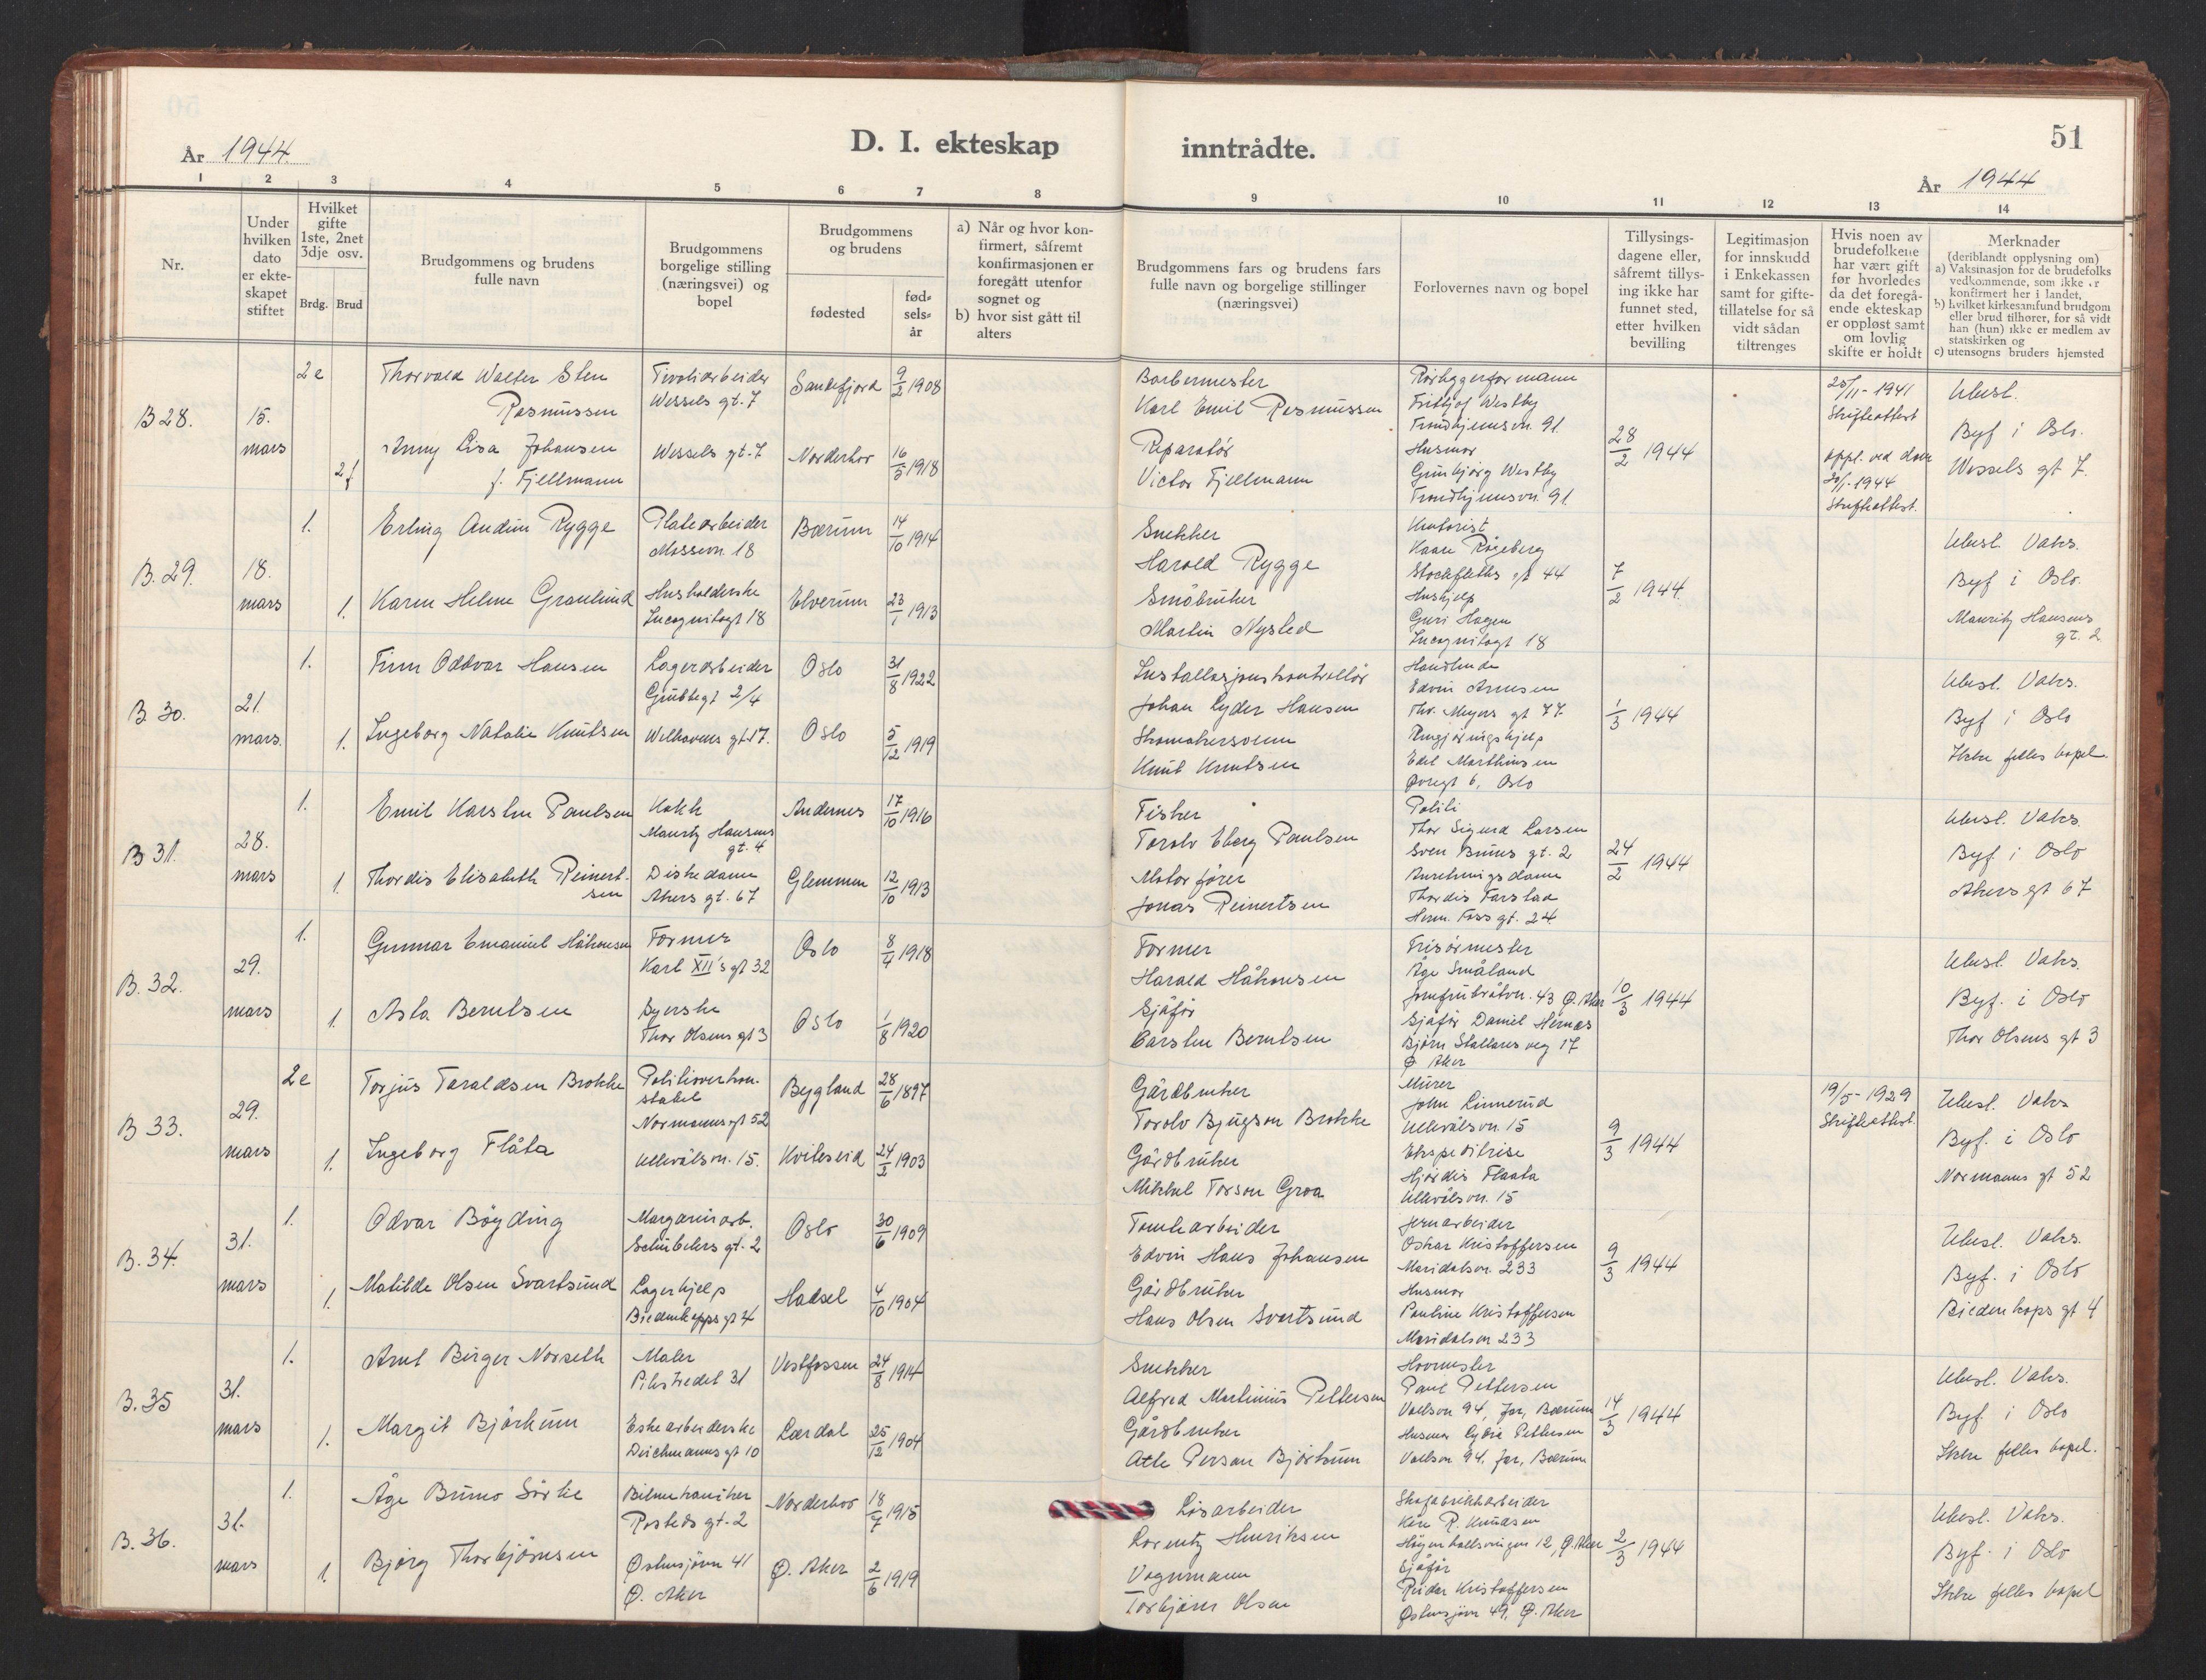 D. I. ekteskap
inntrådte.
51
År 1944
År 1944
1 2 3 4 5 6 7 8 9 10 11 12 13 14
Nr.
Under
hvilken
dato
er ekte-
skapet
stiftet
Hvilket
gifte
1ste, 2net
3dje osv.
Brdg. Brud
Brudgommens og brudens
fulle navn
Brudgommens
borgelige stilling
(næringsvei) og
bopel
Brudgommens
og brudens
fødested
fød-
sels-
år
a) Når og hvor kon-
firmert, såfremt
konfirmasjonen er
foregått utenfor
sognet og
b) hvor sist gått til
alters
Brudgommens fars og brudens fars
fulle navn og borgelige stillinger
(næringsvei)
Forlovernes navn og bopel
Tillysings-
dagene eller,
såfremt tillys-
ing ikke har
funnet sted,
etter hvilken
bevilling
Legitimasjon
for innskudd
i Enkekassen
samt for gifte-
tillatelse for så
vidt sådan
tiltrenges
Hvis noen av
brudefolkene
har vært gift
før hvorledes
da det foregå-
ende ekteskap
er oppløst samt
om lovlig
skifte er holdt
Merknader
(deriblandt opplysning om)
a) Vaksinasjon for de brudefolks
vedkommende, som ikke er
konfirmert her i landet,
b) hvilket kirkesamfund brudgom
eller brud tilhører, for så vidt
han (hun) ikke er medlem av
statskirken og
c) utensogns bruders hjemsted
B 28.
15.
mars
2e
2f
Thorvald Walter Sten
Rasmussen
Anny Lisa Johansen
f. Fjellmann
Tivoliarbeider
Wessels gt. 7
Wessels gt. 7
Sandefjord
Norderhov
9/2 1908
16/5 1918
Barbermester
Karl Emil Rasmussen
Reparatør
Victor Fjellmann
Rørleggerformann
Fritjof Westby
Trondhjemsvn. 91.
Husmor
Gunbjørg Westby
Trondhjemsvn. 91.
28/2 1944
25/11-1941
Skifteattest
oppl. ved dom
20/1-1944
Skifteattest.
Ubesl.
Byf i Oslo.
Wessels gt 7.
B. 29.
18.
mars
1.
1.
Erling Audun Rygge
Karen Helene Granlund
Platearbeider
Mossevn. 18
Husholderske
Incognitogt 18
Bærum
Elverum
14/10 1914
23/1 1913
Snekker
Harald Rygge
Småbruker
Martin Nysted
Motorist
Kaare Røgeberg
Stockfleths gt 44
Hushjelp
Guri Hagen
Incognitogt 18
7/2 1944.
Ubesl. Vaks.
Byf i Oslo.
Mauritz Hansens
gt. 2
B 30.
21.
mars.
1.
1.
Finn Oddvar Hansen
Ingeborg Natalie Knutsen
Lagerarbeider
Grubbegt 2/4
Welhavens gt. 17.
Oslo
Oslo
31/8 1922
5/12 1919
Installasjonskontrollør
Johan Lyder Hansen
Skomakersvenn
Knut Knutsen
Handlende
Edvin Arnesen
Thv. Meyers gt 77.
Rengjøringshjelp
Edel Marthinsen
Øvregt 6, Oslo
1/3 1944
Ubesl. Vaks.
Byf i Oslo
Ikke felles bopel.
B 31.
28.
mars
1.
1.
Emil Karsten Paulsen
Thordis Elisabeth Reinert-
sen
Kokk
Mauritz Hansens
gt. 4
Diskedame
Akers gt. 67
Andenes
Glemmen
17/10 1916
12/10 1913
Fisker
Torolv Eberg Paulsen
Motorfører
Jonas Reinertsen
Politi
Thor Sigurd Larsen
Sven Bruns gt. 2
Anretningsdame
Thordis Farstad
Herm. Foss gt. 24.
24/2 1944
Ubesl. Vaks.
Byf. i Oslo
Akersgt 67
B. 32.
29.
mars
1.
1.
Gunnar Emanuel Håkonsen
Asta Berntsen
Former
Karl XII's gt 32
Syerske
Thor Olsens gt 3
Oslo
Oslo
8/4 1918
1/8 1920
Former
Harald Håkonsen
Sjåfør
Carsten Berntsen
Frisørmester
Åge Småland
Jomfrubråtvn. 43 Ø. Aker
Sjåfør Daniel Hernæs
Bjørn Stallares veg 17
Ø Aker
10/3 1944
Ubesl. Vaks.
Byf. i Oslo
Thor Olsens gt 3
B 33.
29.
mars
2e
1.
Torjus Taraldsen Brokke
Ingeborg Flåta
Politioverkon-
stabel
Normanns gt 52
Ullevålsvn. 15.
Bygland
Kviteseid
28/6 1897
24/2 1903
Gårdbruker
Torolv Bjugson Brokke
Gårdbruker
Mikkel Torson Groa
Murer
John Linnerud
Ullevålsvn. 15
Ekspeditrise
Hjørdis Flaata
Ullevålsvn. 15
9/3 1944
19/5-1929
Skifteattest.
Ubesl. Vaks
Byf. i Oslo
Normanns gt 52
B. 34.
31.
mars
1.
1.
Odvar Bøyding
Matilde Olsen Svartsund
Margarinarb.
Schübelers gt. 2
Lagerhjelp
Biedenkapps gt 4
Oslo
Hadsel
30/6 1909
4/10 1904
Tomtearbeider
Edvin Hans Johansen
Gårdbruker
Hans Olsen Svartsund
Jernarbeider
Oskar Kristoffersen
Maridalsvn. 233
Husmor
Pauline Kristoffersen
Maridalsvn 233
9/3 1944
Ubesl. Vaks.
Byf. i Oslo
Biedenkaps gt 4
B. 35
31.
mars
1.
1.
Arnt Birger Norseth
Margit Bjørkum
Maler
Pilestredet 31
Eskearbeiderske
Deichmanns gt 10
Vestfossen
Lærdal
24/8 1914
25/12 1904
Snekker
Alfred Martinius Pettersen
Gårdbruker
Atle Persan Bjørkum
Hovmester
Paul Pettersen
Vallsvn 94, Jar, Bærum
Husmor Lydie Pettersen
Vallsvn 94. Jar, Bærum
14/3 1944
Ubesl. Vaks.
Byf. i Oslo
Ikke felles bopel.
B. 36.
31.
mars
1.
1.
Åge Bruno Sørlie
Bjørg Thorbjørnsen
Bilmekaniker
Rosteds gt. 2
Østensjøvn 41
Ø. Aker
Norderhov
Ø. Aker
18/7 1915
2/6 1919
Løsarbeider
Lorentz Henriksen
Vognmann
Torbjørn Olsen
Skofabrikkarbeider
Kåre R. Knudsen
Høyenhallsvingen 12, Ø. Aker
Sjåfør
Reidar Kristoffersen
Østensjøvn 49, Ø. Aker
2/3 1944
Ubesl. Vaks.
Byf. i Oslo
Ikke felles bopel